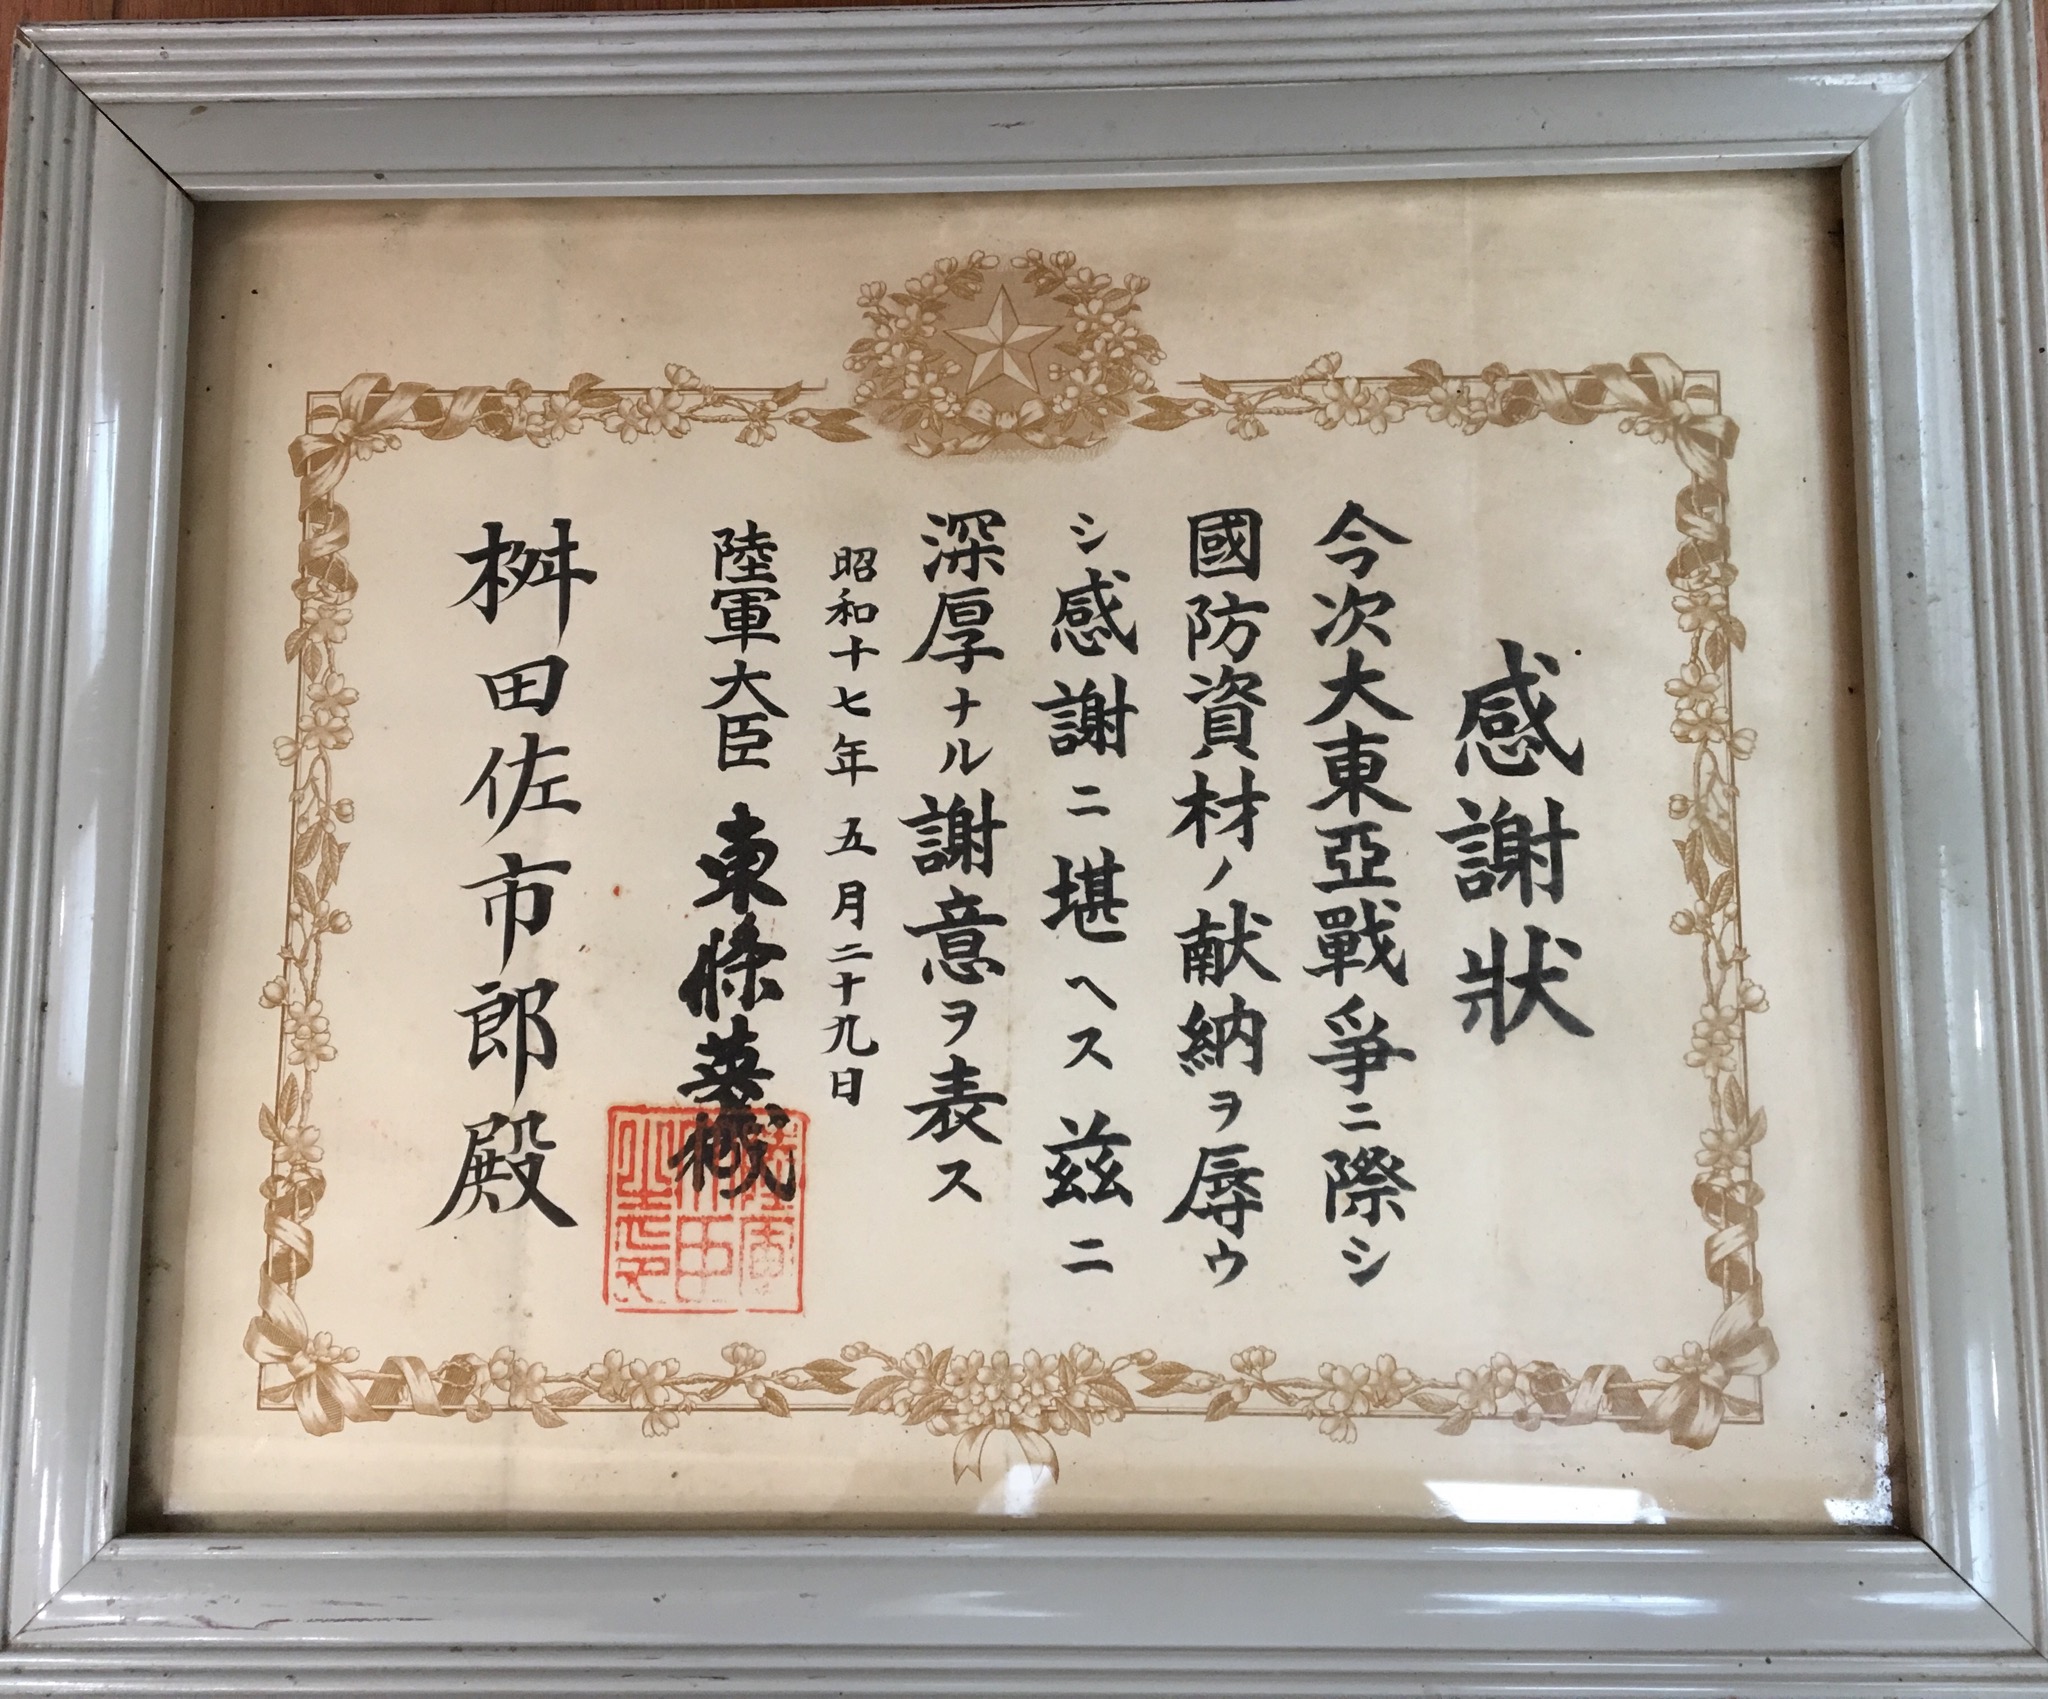 感謝狀
今次大東亞戰爭ニ際シ
國防資材ノ献納ヲ辱ウ
シ感謝ニ堪ヘス茲ニ
深厚ナル謝意ヲ表ス
昭和十七年五月二十九日
陸軍大臣 東條英機
陸軍大臣之章
桝田佐市郎殿